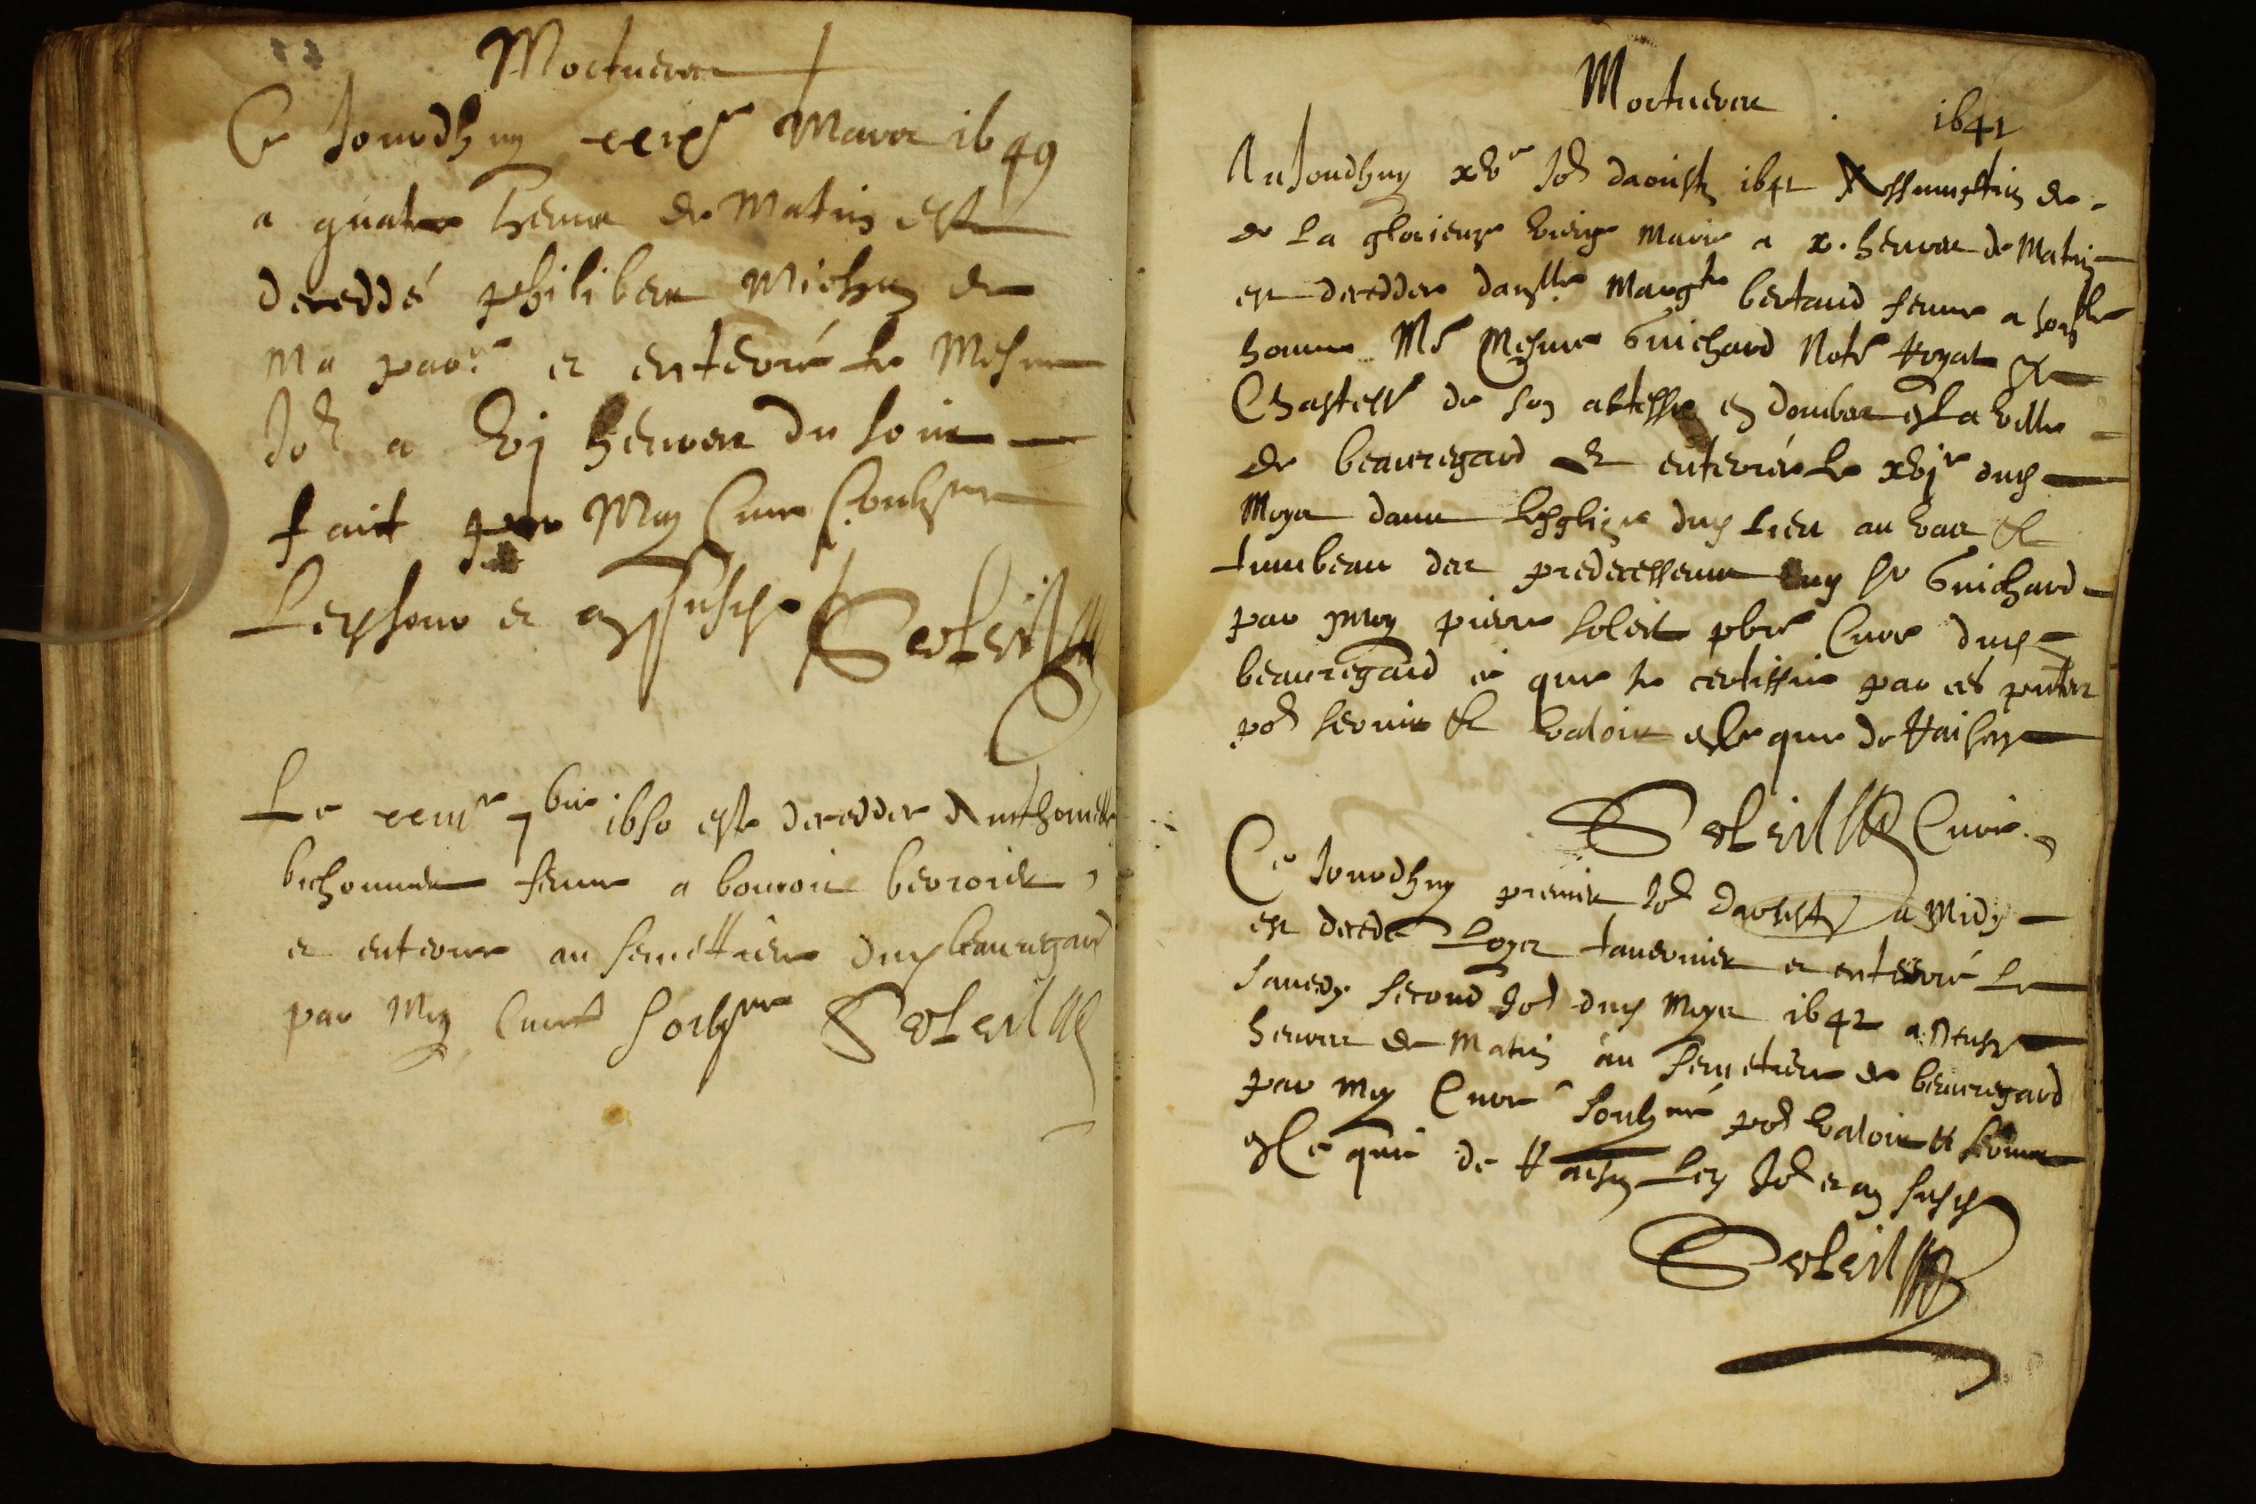 Mortueres
Ce Jourdhuy xxixe Mars 1649
a quatre heures de Matin est
deceddé philibert Michon de
Ma parse et enterré le Mesme
Jor a vj heures du soir
fait par Moy Cure soubsne
Les jour et an susdt Soleil
Le xxiiie 7bre 1650 est deceddee Anthoinette
bichonnier femme a
et enterree au semettiere dud beauregard
par Moy Curé soubsne Soleil
Mortueres 1641
Aujourdhuy xve Jor daoust 1641 Assumption de
de la glorieuse vierge Marie a x. heures de Matin
est deceddee damlle Margte bertaud femme a honble
homme Me Guichard Note Royal et
Chastell de son altesse en dombes en la ville
de beauregard et enterrée le xvje dud
Moys dans lesglize dud Lieu au vas et
tumbeau des predecesseurs dud Sr Guichard
par Moy pierre Soleil pbre Cure dud
beauregard ce que Je certiffie par ces pntes
por servir et valoir ce que de Raison
Soleil Cure
Ce Jourdhuy premier Jor daoust a Midy
est decedé Loys tavernier et enterré le
samedy second Jor dud Moys 1642 a deux
heures de Matin au semetiere de beauregard
par Moy Cure soubsné por valoir et servir
ce que de Raison Les Jor et an susdt
Soleil